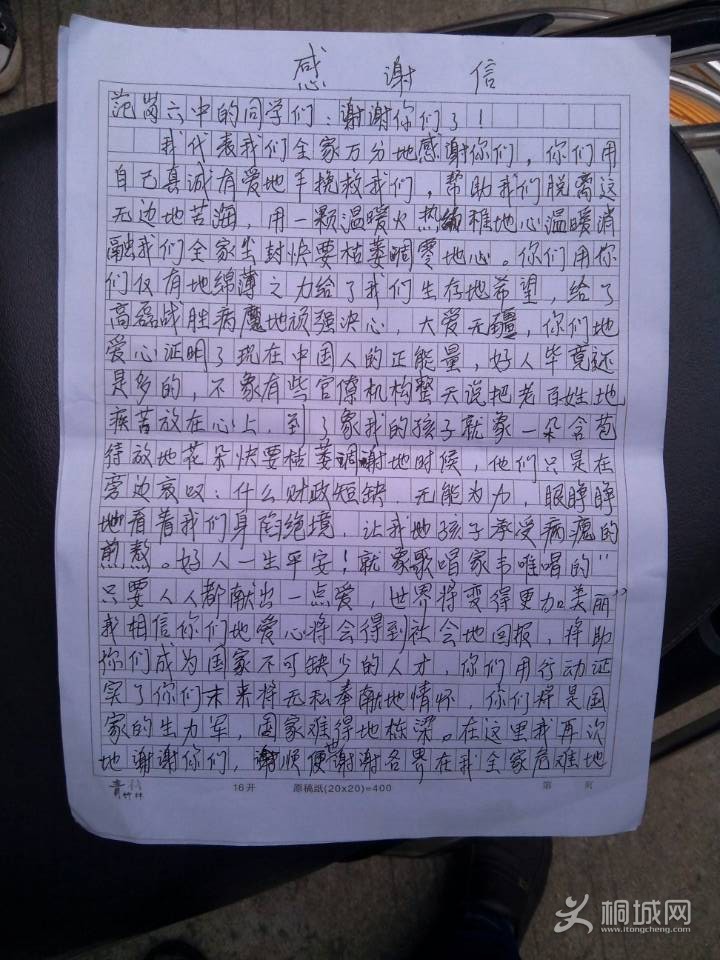 感谢信
范岗六中的同学们：谢谢你们了！
我代表我们全家万分地感谢你们，你们用
自己真诚有爱地手挽救我们，帮助我们脱离这
无边地苦海，用一颗温暖火热 稚地心温暖消
融我们全家尘封快要枯萎凋零地心。你们用你
们仅有地绵薄之力给了我们生存地希望，给了
高磊战胜病魔地顽强决心，大爱无疆，你们地
爱心证明了现在中国人的正能量，好人毕竟还
是多的，不象有些官僚机构整天说把老百姓地
疾苦放在心上，到了象我的孩子就象一朵含苞
待放地花朵快要枯萎凋谢地时候，他们只是在
旁边哀叹：什么财政短缺，无能为力，眼睁睁
地看着我们身陷绝境，让我地孩子承受病魔的
煎熬。好人一生平安！就象歌唱家韦唯唱的“
只要人人都献出一点爱，世界将变得更加美丽”
我相信你们地爱心将会得到社会地回报，将助
你们成为国家不可缺少的人才，你们用行动证
实了你们未来将无私奉献地情怀，你们将是国
家的生力军，国家难得地栋梁。在这里我再次
地谢谢你们，顺便也谢谢各界在我全家危难地
青竹林 16开 原稿纸(20×20)=400 第 页
桐城网
www.itongcheng.com